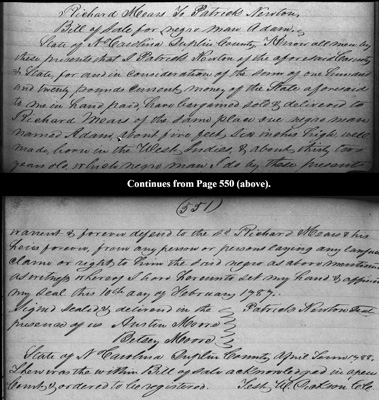 Richard Mears To Patrick Newton
Bill of Sale for negro man Adam.
State of N Carolina Duplin County Know all men by
these presents that I Patrick Newton of the aforesaid County
& State, for and in consideration of the sum of one hundred
and twenty pounds Current money of the State aforesaid
to me in hand paid, have bargained sold & delivered to
Richard Mears of the same place one negro man
named Adam, about five feet, six inches high, well
made, born in the West Indies, & about thirty two
years old, which negro man I do by these presents
Continues from Page 550 (above).
(551)
warrent & forever defend to the sd Richard Mears & his
heirs forever, from any person or persons laying any lawful
claim or right to him the said negro as above mentioned
as witness whereof I have hereunto set my hand & affixed
my seal this 10th day of February 1787.
Signed sealed & delivered in the Patrick Newton Seal
presence of us Austin Moore
Betsey Moore
State of N Carolina Duplin County April Term 1788.
Then was the within Bill of Sale acknowledged in open
Court & ordered to be registered. Test W. Dickson C.C.